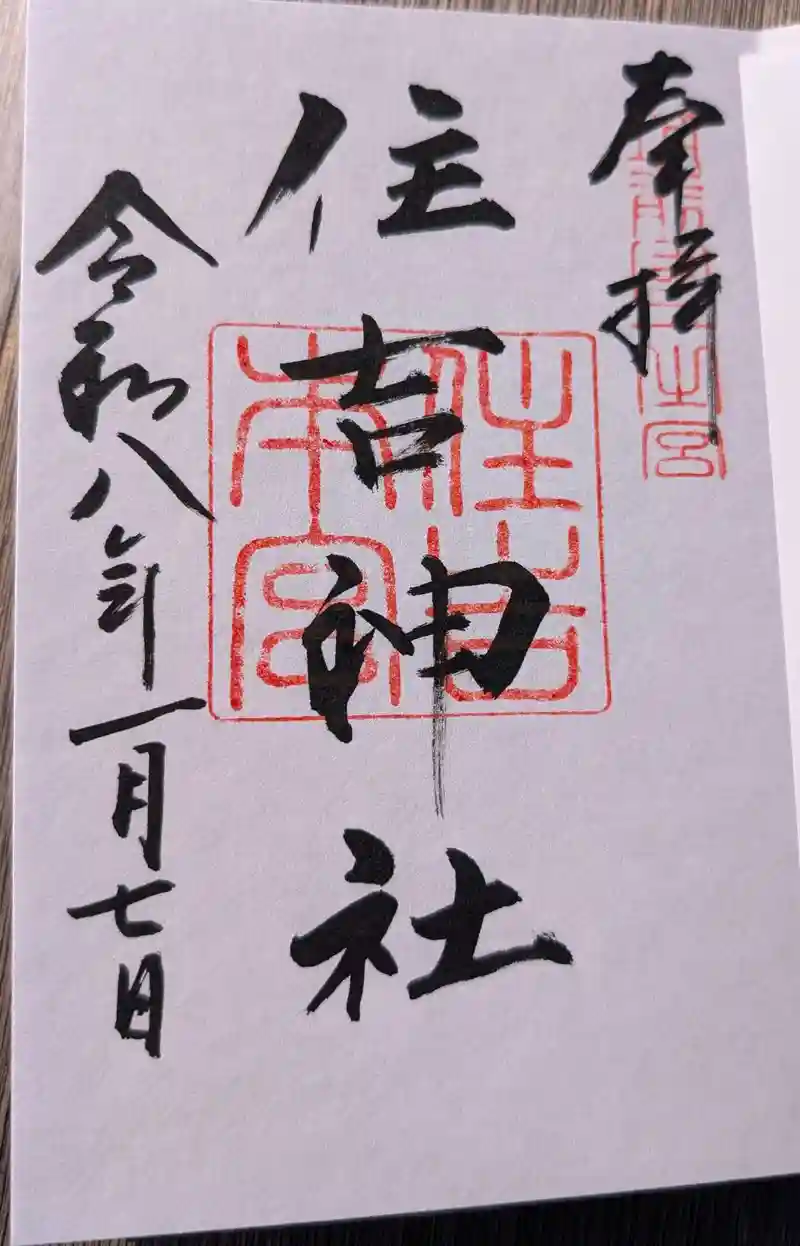 奉拝
住吉神社
住吉
本宮
令和八年一月七日